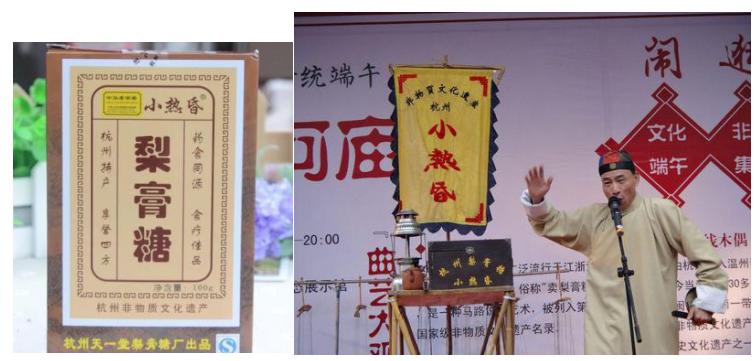 小热昏®
梨膏糖
药食同源 食疗佳品
杭州特产 享誉四方
净含量：100g
杭州非物质文化遗产
杭州天一堂梨膏糖厂出品
统端午
河庙
非物質文化遺產
杭州
小熱昏
杭州梨膏糖
小熱昏
-20:00
曲艺大观
态展示馆
广泛流行于江浙
俗称“卖梨膏
是一种马路
艺术，被列入第
国家级非物质文
遗产名录。
闹
逛
文化
端午
非
集
线木偶
入温州
30多
文化遗产之一